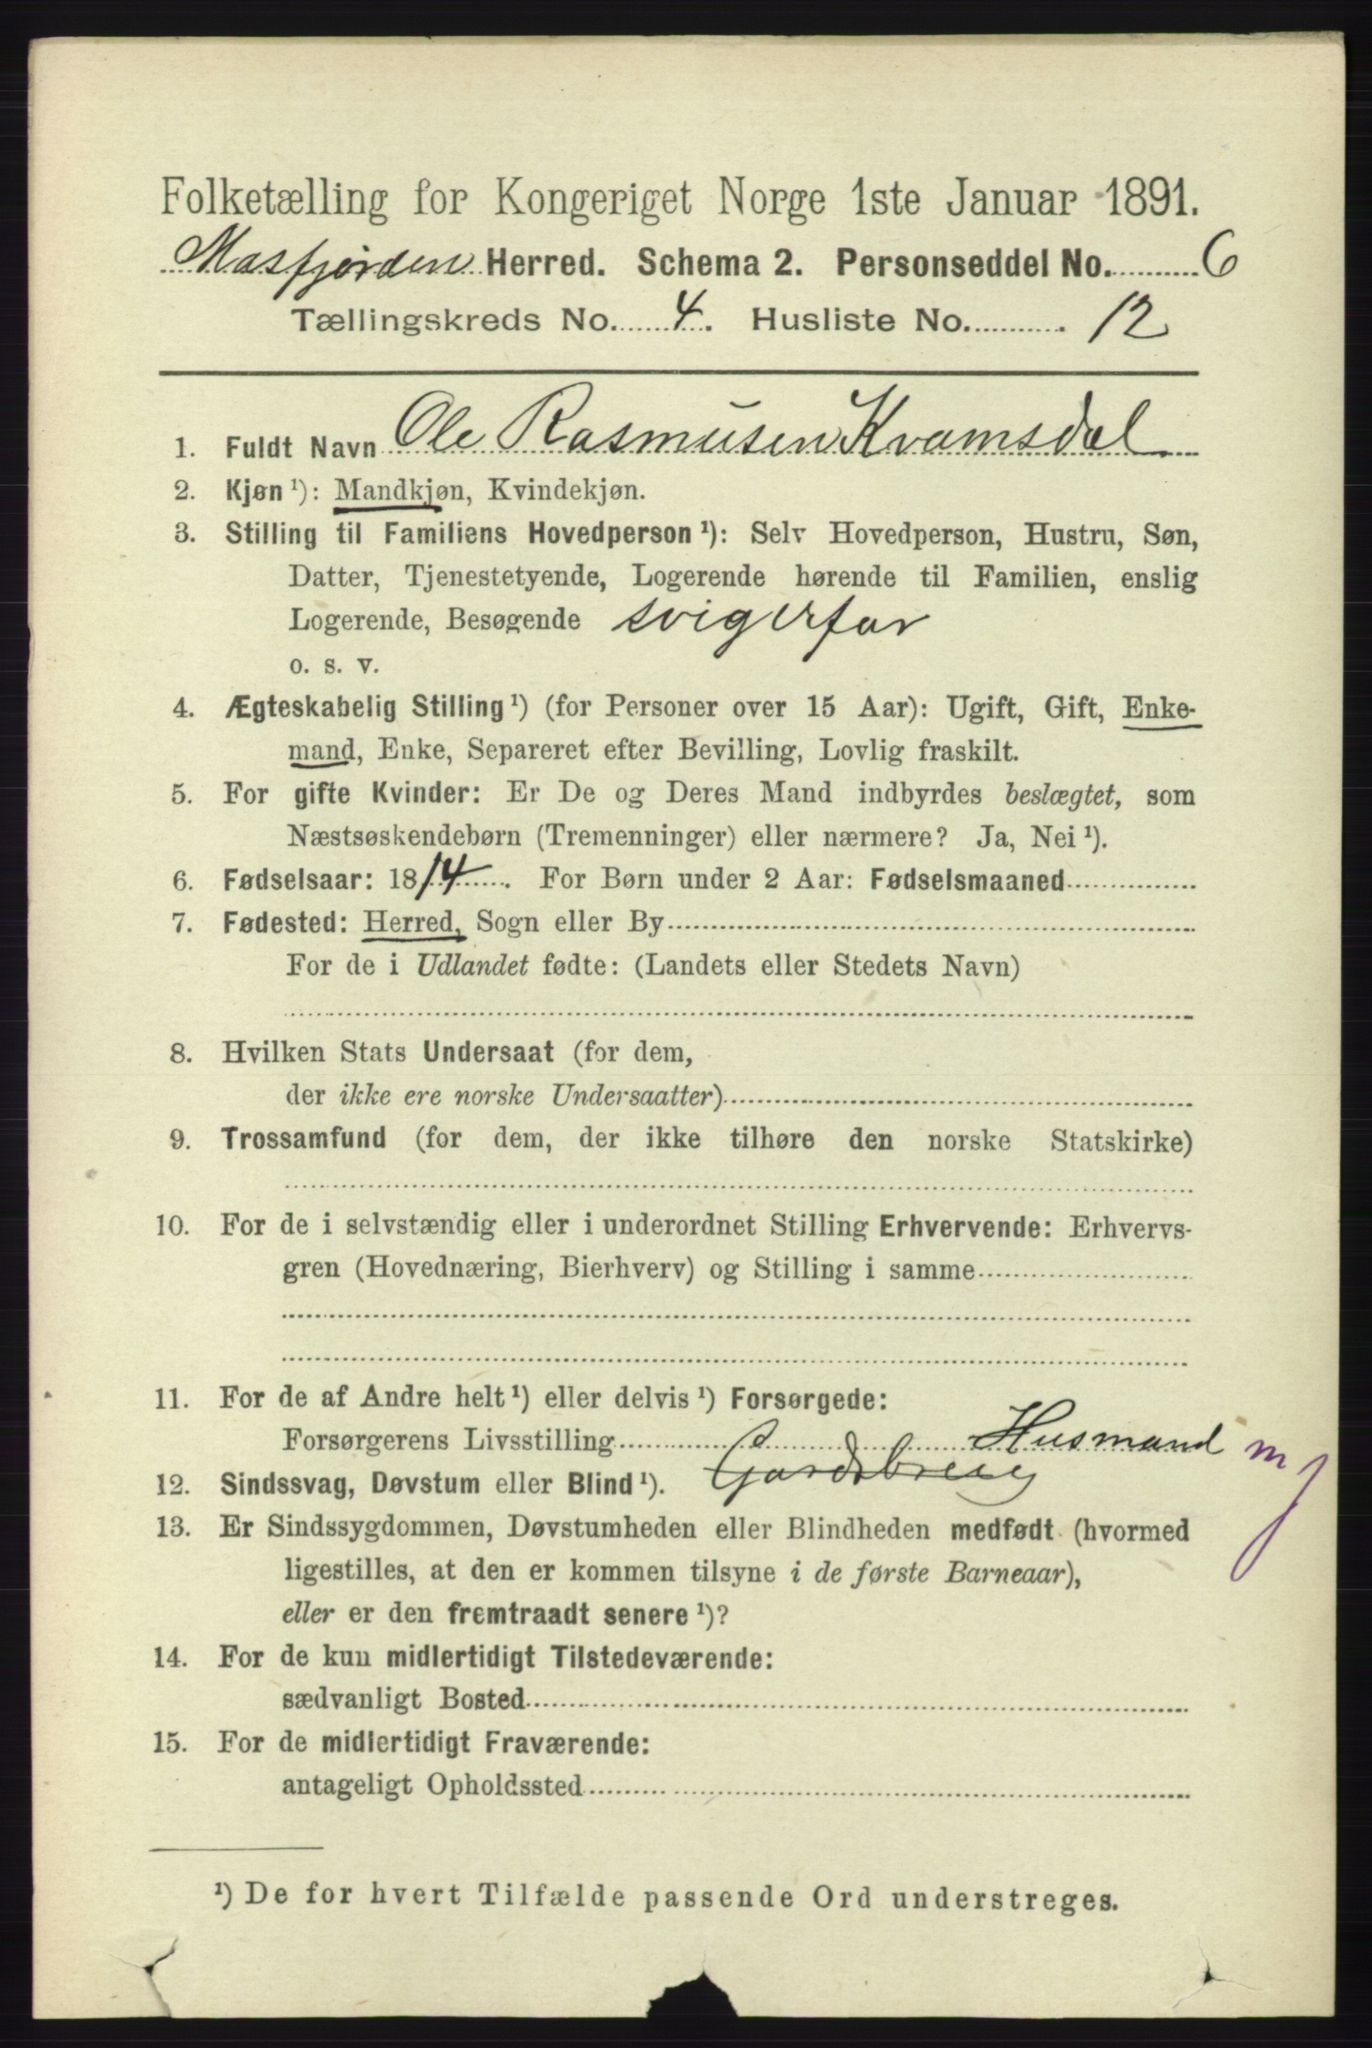 Folketælling for Kongeriget Norge 1ste Januar 1891.
Masfjorden Herred. Schema 2. Personseddel No. 6
Tællingskreds No. 4. Husliste No. 12
1. Fuldt Navn Ole Rasmusen Kvamsdal
2. Kjøn ¹): Mandkjøn, Kvindekjøn.
3. Stilling til Familiens Hovedperson ¹): Selv Hovedperson, Hustru, Søn,
Datter, Tjenestetyende, Logerende hørende til Familien, enslig
Logerende, Besøgende svigerfar
o. s. v.
4. Ægteskabelig Stilling ¹) (for Personer over 15 Aar): Ugift, Gift, Enke-
mand, Enke, Separeret efter Bevilling, Lovlig fraskilt.
5. For gifte Kvinder: Er De og Deres Mand indbyrdes beslægtet, som
Næstsøskendebørn (Tremenninger) eller nærmere? Ja, Nei ¹).
6. Fødselsaar: 1814. For Børn under 2 Aar: Fødselsmaaned
7. Fødested: Herred, Sogn eller By
For de i Udlandet fødte: (Landets eller Stedets Navn)
8. Hvilken Stats Undersaat (for dem,
der ikke ere norske Undersaatter)
9. Trossamfund (for dem, der ikke tilhøre den norske Statskirke)
10. For de i selvstændig eller i underordnet Stilling Erhvervende: Erhvervs-
gren (Hovednæring, Bierhverv) og Stilling i samme
11. For de af Andre helt ¹) eller delvis ¹) Forsørgede:
Forsørgerens Livsstilling Husmand m J
12. Sindssvag, Døvstum eller Blind ¹).
13. Er Sindssygdommen, Døvstumheden eller Blindheden medfødt (hvormed
ligestilles, at den er kommen tilsyne i de første Barneaar),
eller er den fremtraadt senere ¹)?
14. For de kun midlertidigt Tilstedeværende:
sædvanligt Bosted
15. For de midlertidigt Fraværende:
antageligt Opholdssted
¹) De for hvert Tilfælde passende Ord understreges.